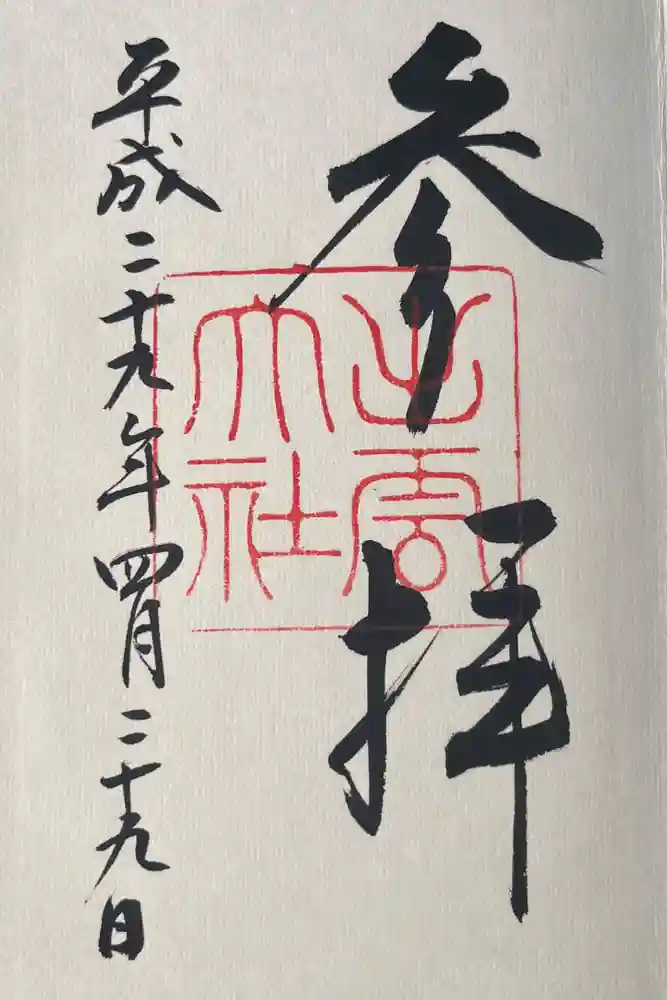 参拝
出雲
大社
平成二十九年四月二十九日